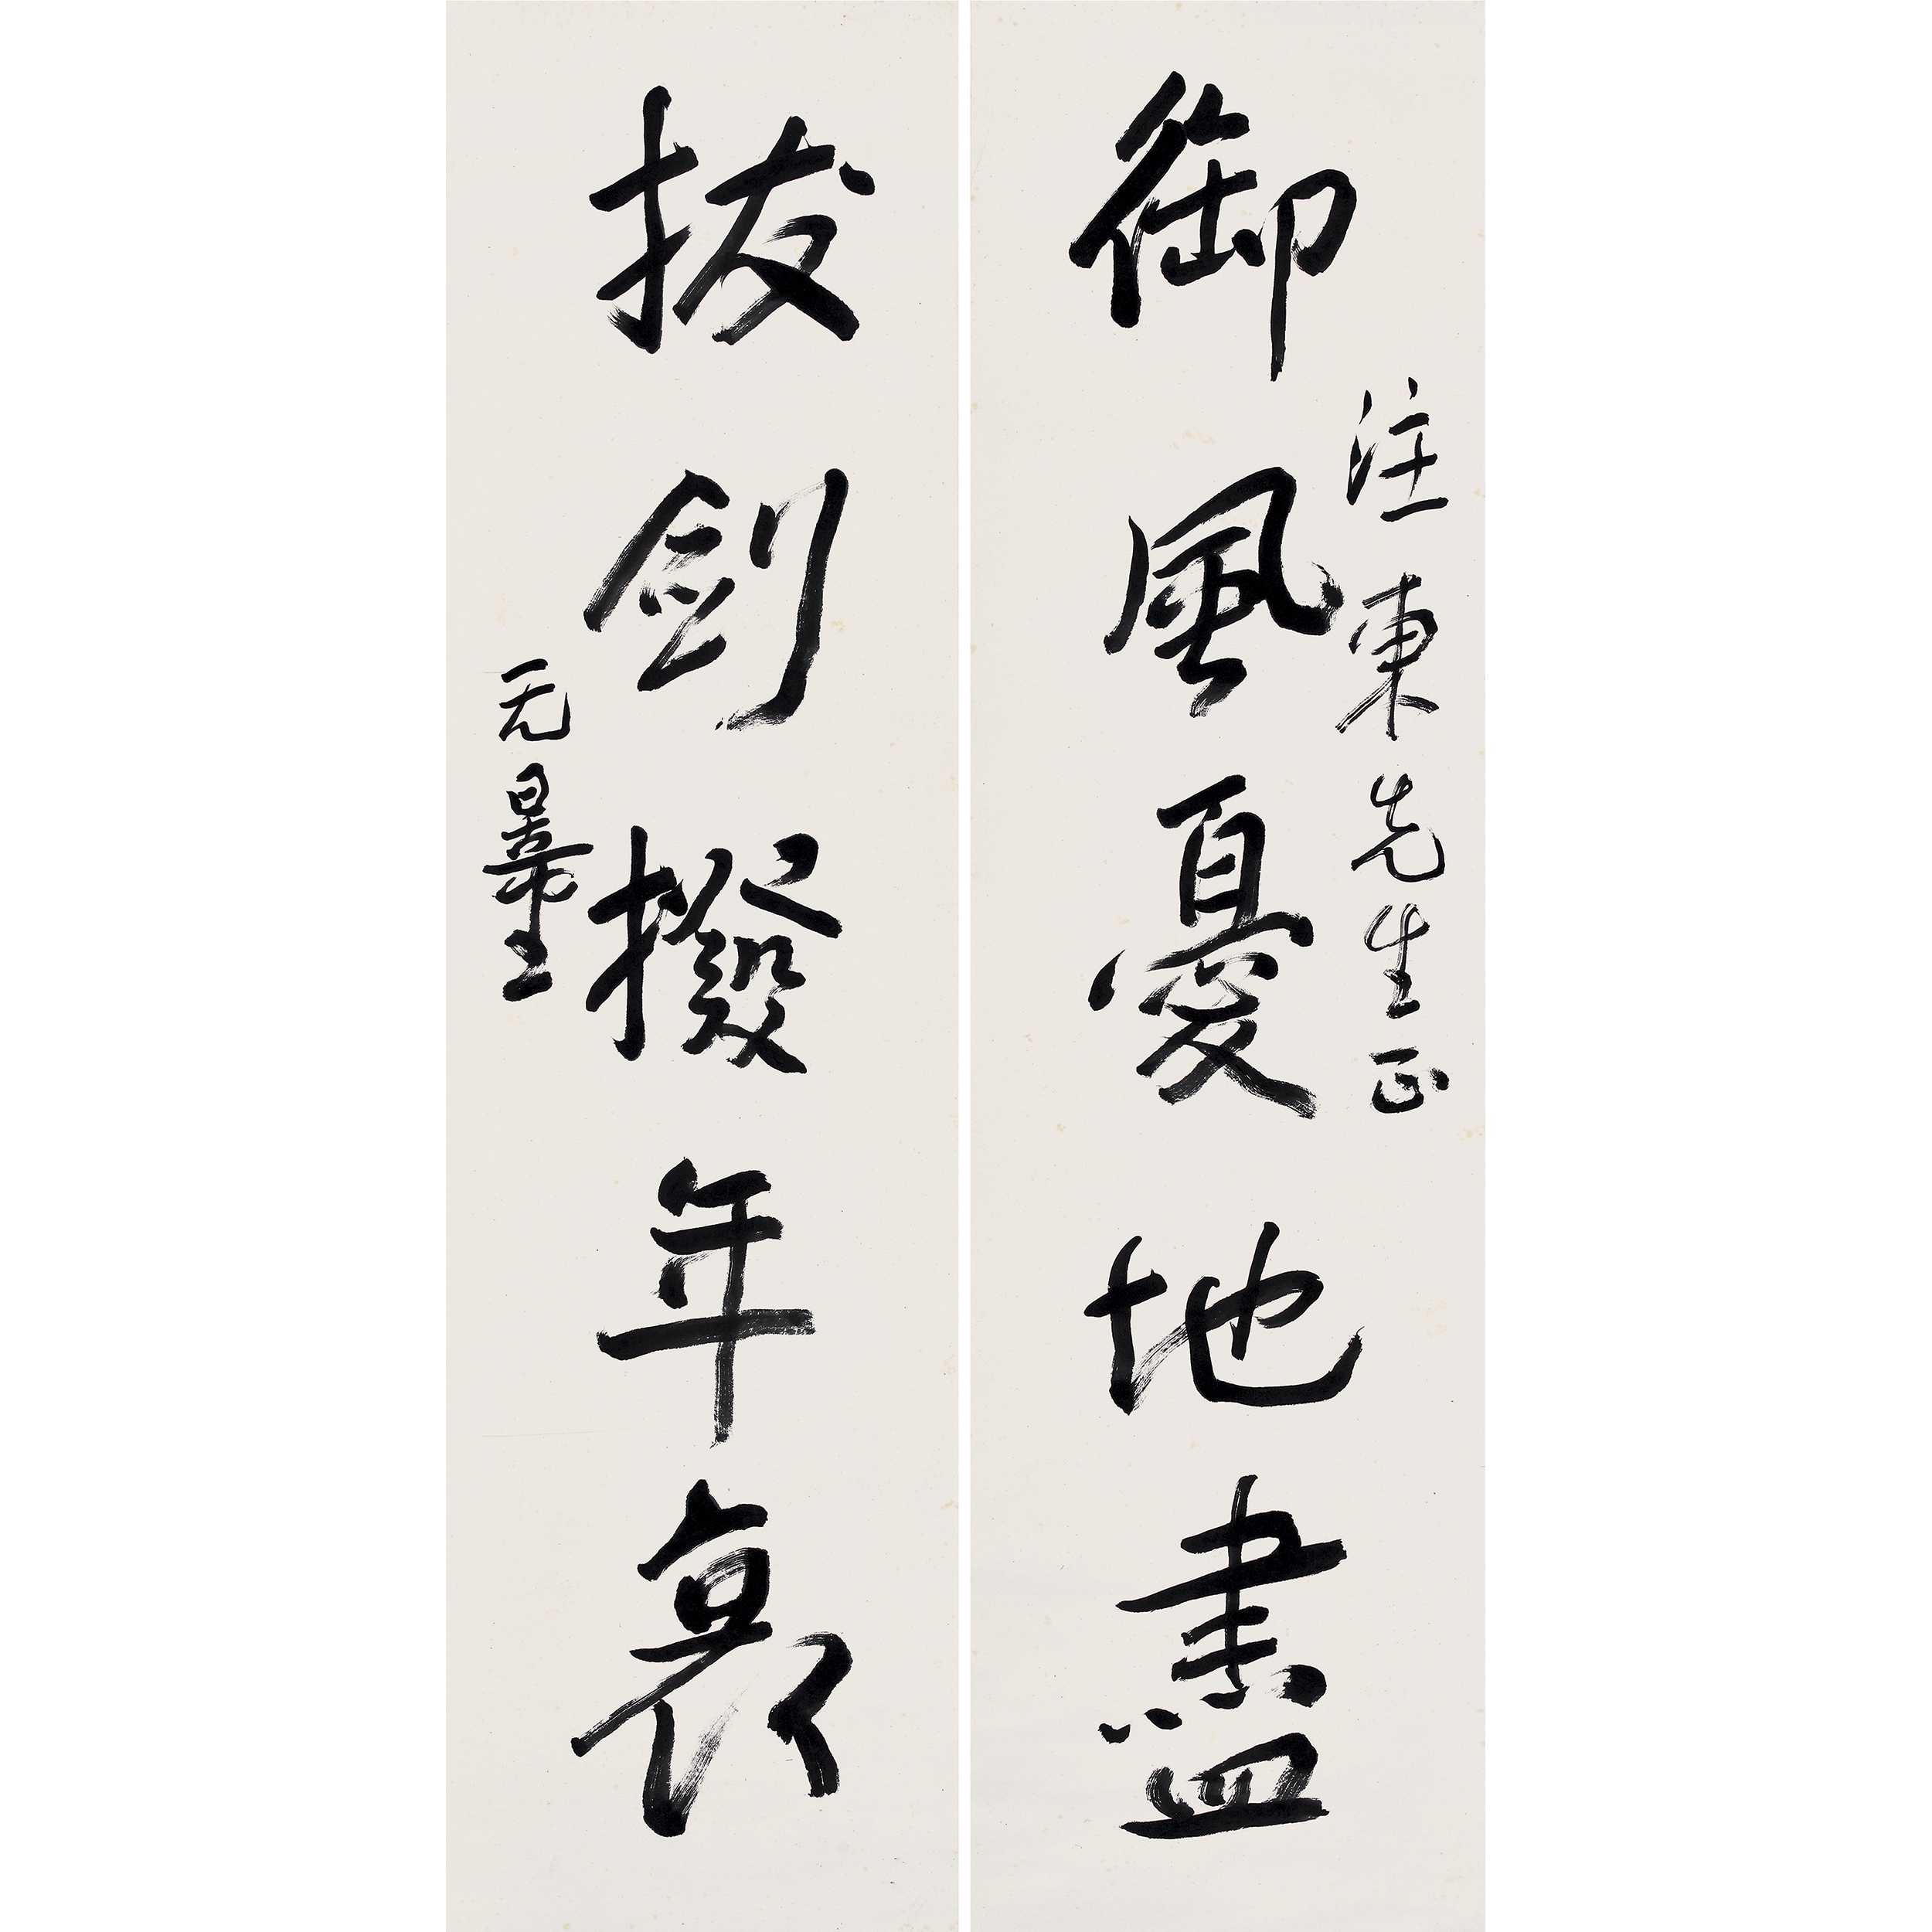 御風憂地盡
注東先生正
拔劍撥年衰
无量